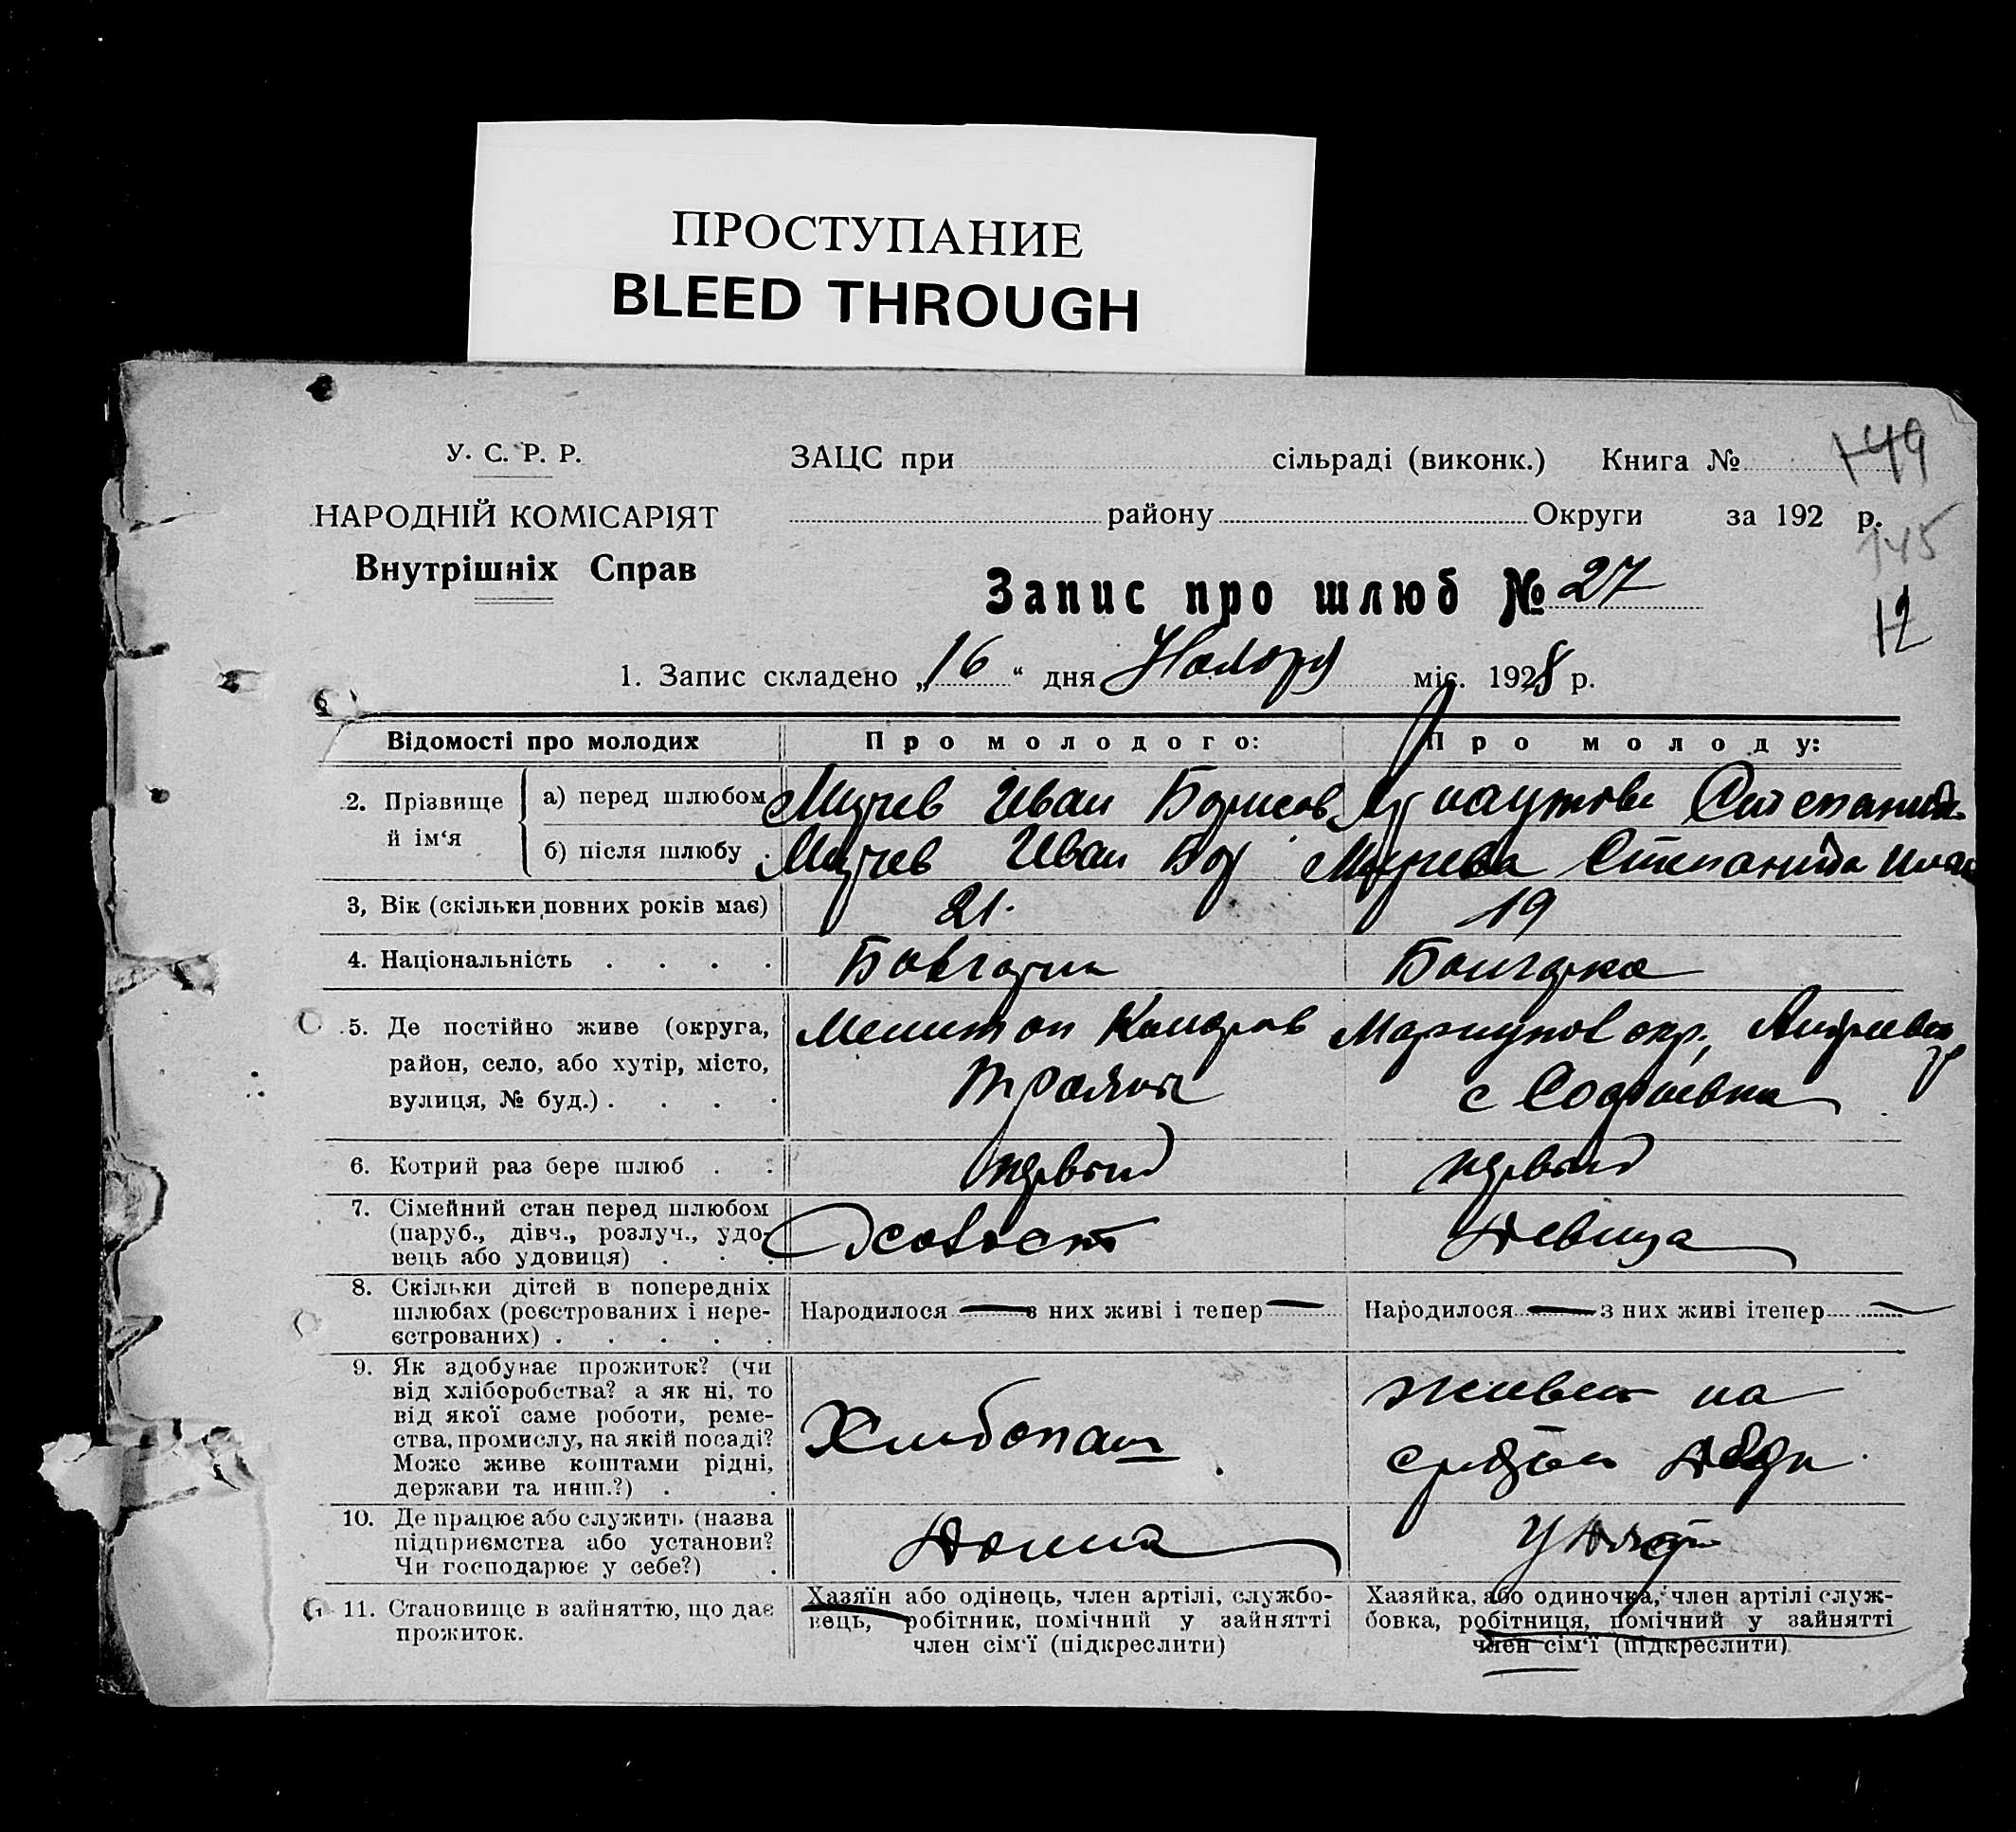 ПРОСТУПАНИЕ
BLEED THROUGH
149
У. С. Р. Р.
ЗАЦС при сільраді (виконк.) Книга №
НАРОДНІЙ КОМІСАРІЯТ
району Округи за 192 р.
145
Внутрішніх Справ
Запис про шлюб № 27
12
1. Запис складено „16“ дня міс. 1928 р.
Відомості про молодих
Про молодого:
Про молоду:
2. Прізвище й ім‘я
а) перед шлюбом
Иван Борисов
Степанида
б) після шлюбу
Иван Бор
Степанида
3, Вік (скільки повних років має)
21.
19
4. Національність
Болгарин
Болгарка
5. Де постійно живе (округа,
район, село, або хутір, місто,
вулиця, № буд.)
Мелитоп
Трояны
Мариупов окр., Андреевск
с Софиевка
6. Котрий раз бере шлюб
первый
первый
7. Сімейний стан перед шлюбом
(паруб., дівч., розлуч., удо-
вець або удовиця)
Холост
Девица
8. Скільки дітей в попередніх
шлюбах (реєстрованих і нере-
єстрованих)
Народилося — з них живі і тепер —
Народилося — з них живі і тепер —
9. Як здобуває прожиток? (чи
від хліборобства? а як ні, то
від якої саме роботи, реме-
ства, промислу, на якій посаді?
Може живе коштами рідні,
держави та инш.?)
Хлебопаш
живет на
10. Де працює або служить (назва
підприємства або установи?
Чи господарює у себе?)
Дома
11. Становище в зайняттю, що дає
прожиток.
Хазяїн або одінець, член артілі, службо-
вець, робітник, помічний у зайнятті
член сім‘ї (підкреслити)
Хазяйка, або одиночка, член артілі служ-
бовка, робітниця, помічний у зайнятті
член сім‘ї (підкреслити)